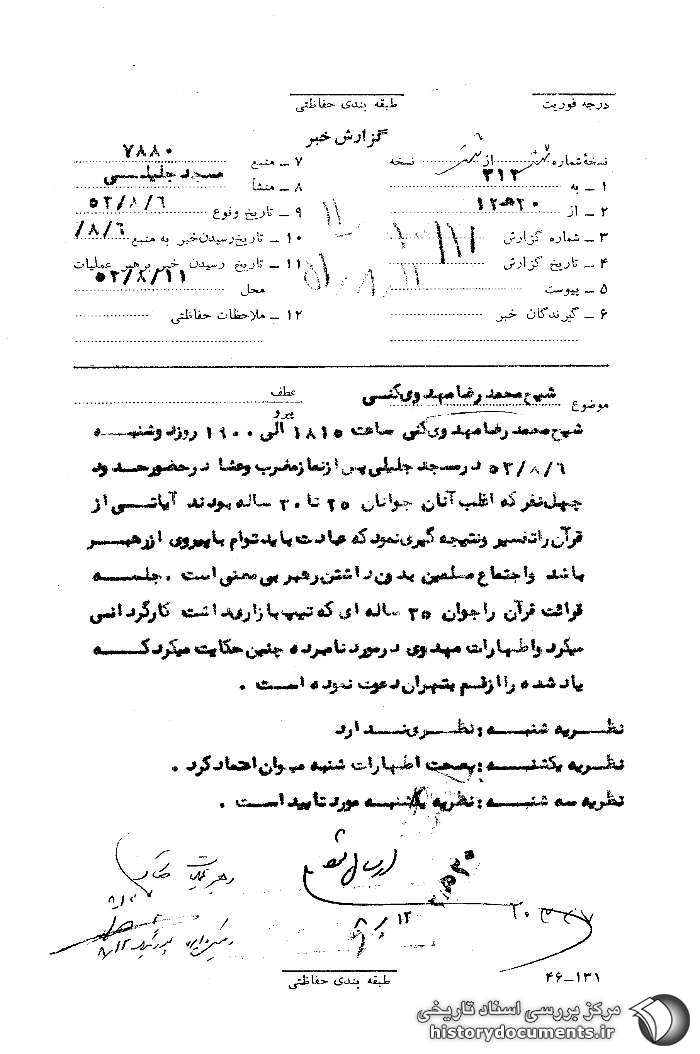 درجه فوریت طبقه بندی حفاظتی
گزارش خبر
نسخهٔ شماره از نسخه ۷ ـ منبع ۷۸۸۰
۱ ـ به ۳۱۲ ۸ ـ منشأ مسجد جلیلی
۲ ـ از ۲۰ﻫ۱۲ ۹ ـ تاریخ وقوع ۵۲/۸/۶
۳ ـ شماره گزارش ۱۰ ـ تاریخ رسیدن خبر به منبع /۸/۶
۴ ـ تاریخ گزارش ۱۱ ـ تاریخ رسیدن خبر برهبر عملیات
۵ ـ پیوست محل ۵۲/۸/۱۱
۶ ـ گیرندگان خبر ۱۲ ـ ملاحظات حفاظتی
موضوع شیخ محمد رضا مهدوی کنی عطف
پیرو
شیخ محمد رضا مهدوی کنی ساعت ۱۸۱۵ الی ۱۹۰۰ روز دوشنبه
۵۲/۸/۶ در مسجد جلیلی پس از نماز مغرب و عشا در حضور حدود
چهل نفر که اغلب آنان جوانان ۲۵ تا ۳۰ ساله بودند آیاتی از
قرآن را تفسیر و نتیجه گیری نمود که عبادت باید توام با پیروی از رهبر
باشد و اجتماع مسلمین بدون داشتن رهبر بی معنی است . جلسه
قرائت قرآن را جوان ۳۵ ساله ای که تیپ بازاری داشت کارگردانی
میکرد و اظهارات مهدوی در مورد نامبرده چنین حکایت میکرد که
یاد شده را از قم بتهران دعوت نموده است .
نظریه شنبه : نظری ندارد
نظریه یکشنبه : بصحت اظهارات شنبه میوان اعتماد کرد .
نظریه سه شنبه : نظریه یکشنبه مورد تایید است .
ارسال شود
طبقه بندی حفاظتی
۴۶-۱۳۱
مرکز بررسی اسناد تاریخی
historydocuments.ir